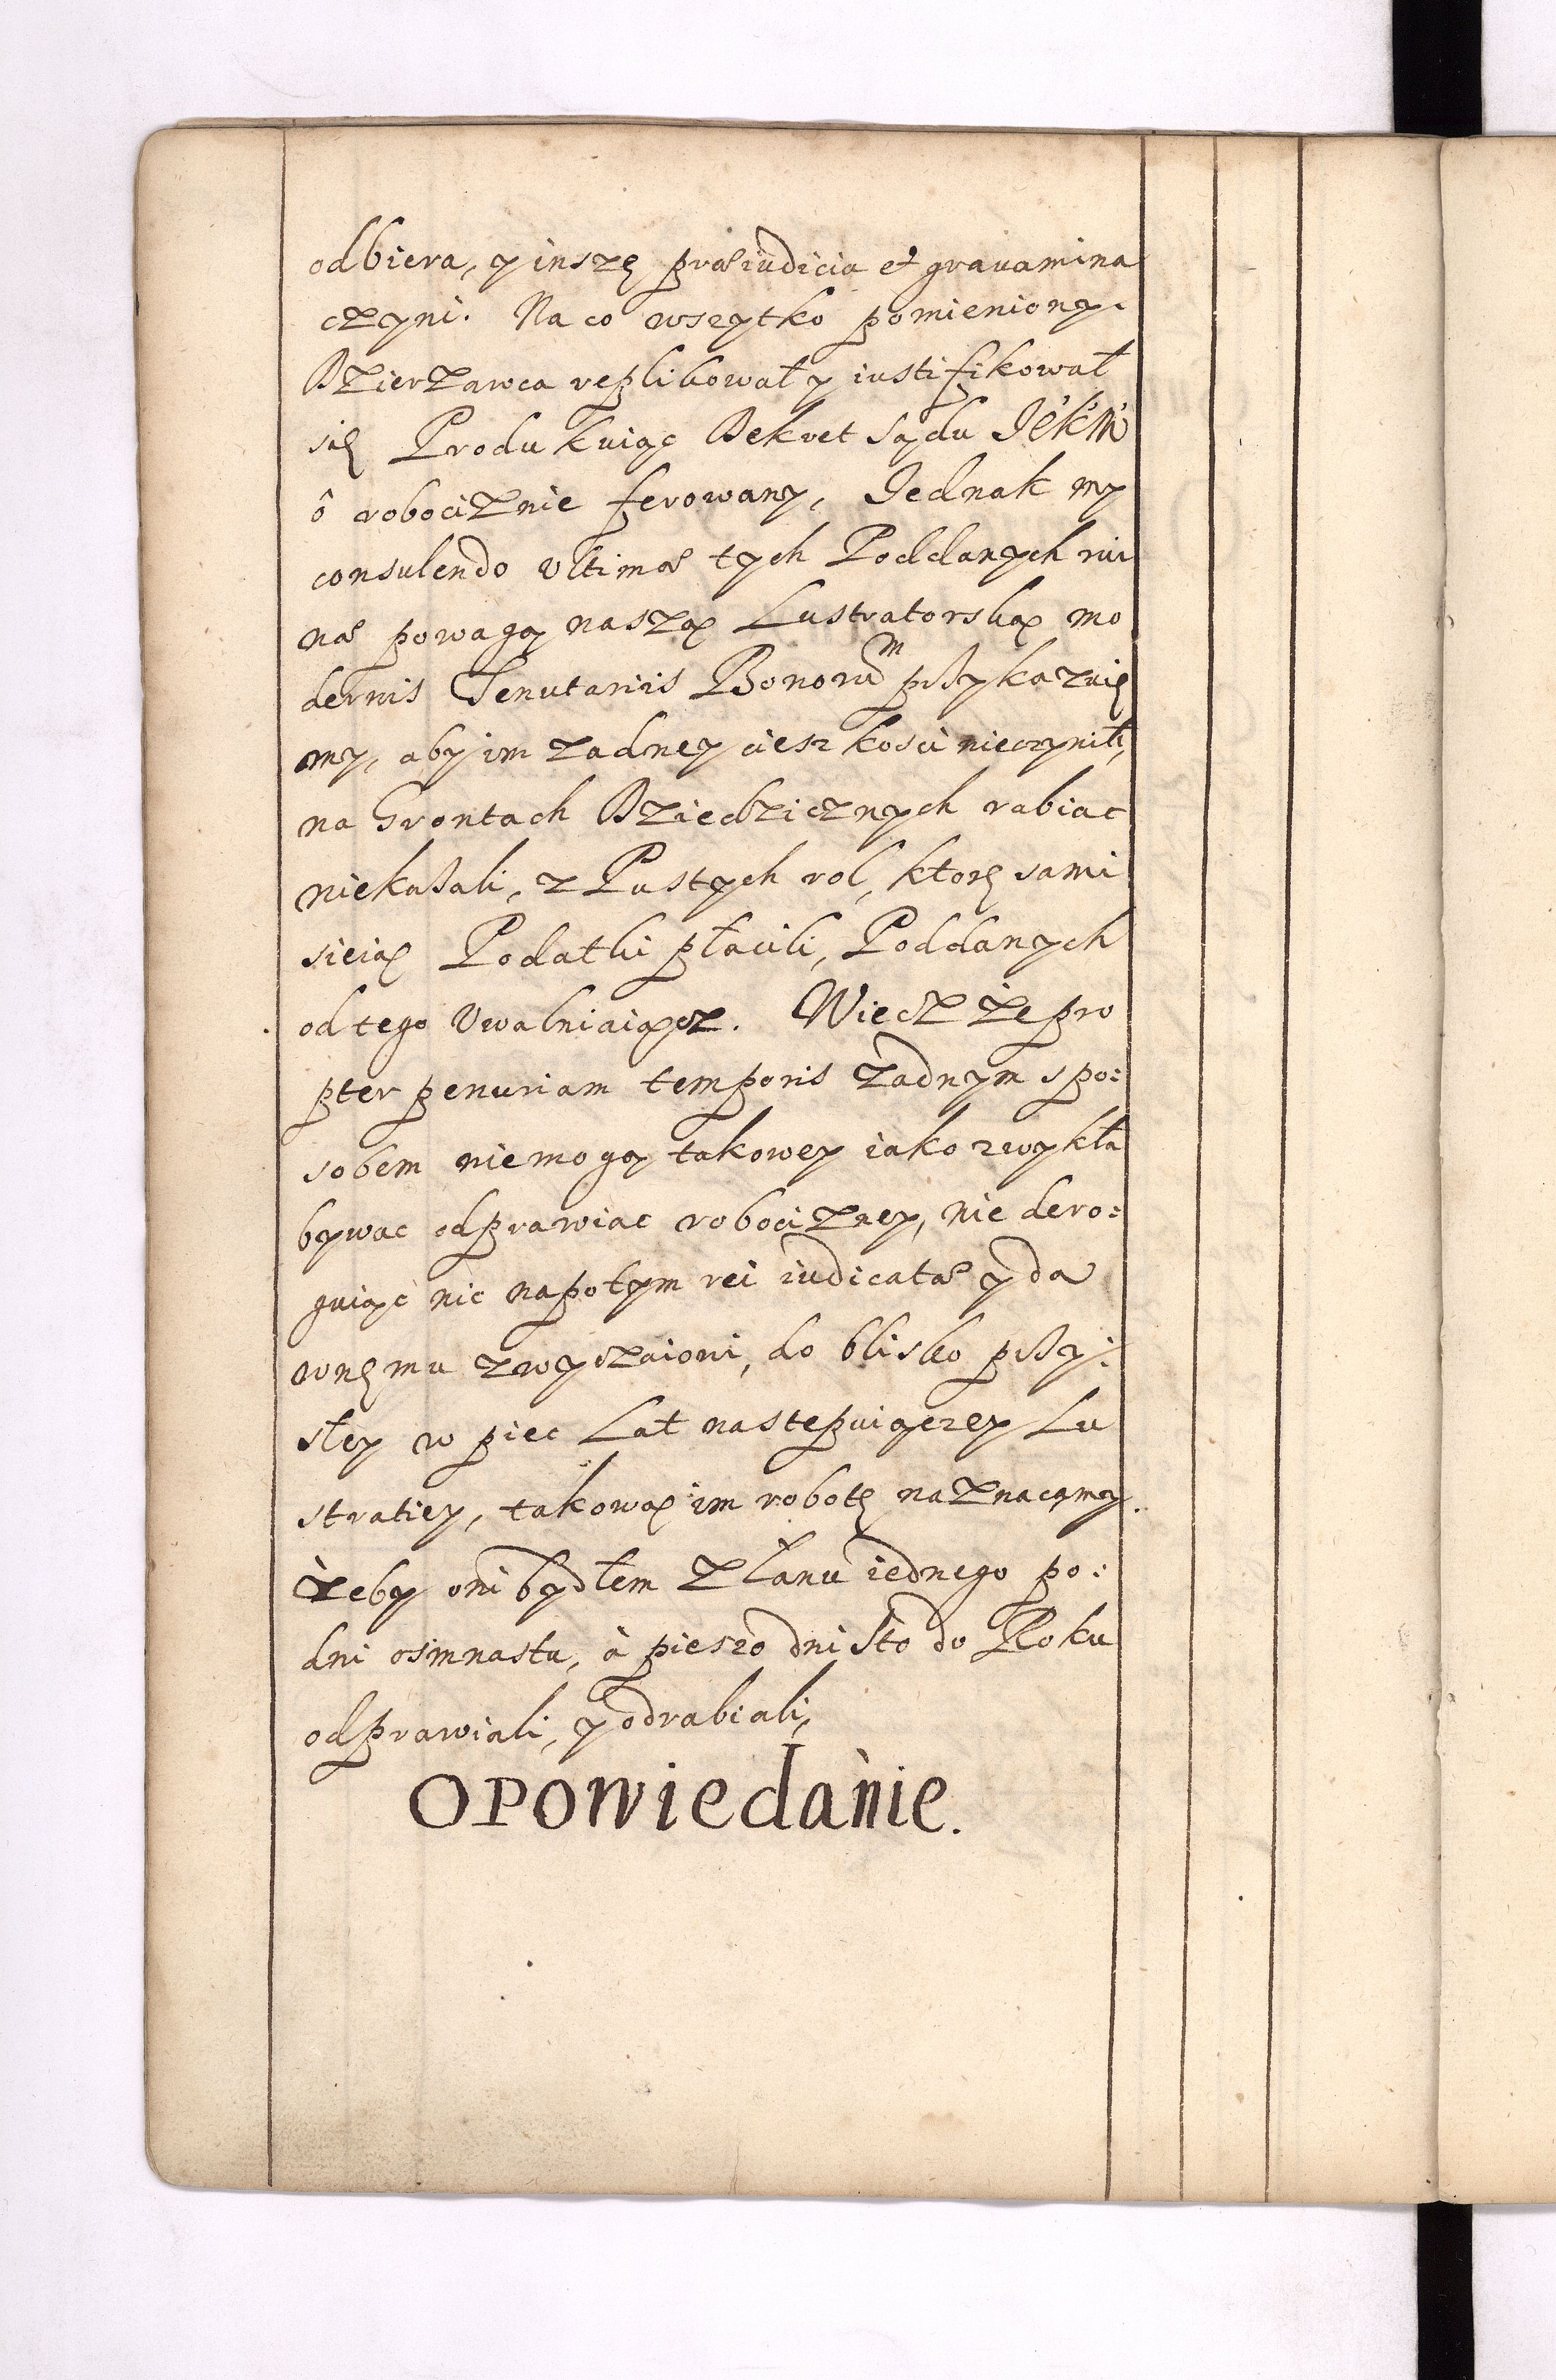 odbiera, y inszę præiudicia et grauamina
czyni. Na co wszytko pomieniony
Dzierzawca replikował y iustifikował
się Produkuiąc Dekret Sądu JéKḾ
ô robociznie ferowany, Jednak my
consulendo ultimæ tych Poddanych rui
næ powagą naszą Lustratorską mo
dernis Tenutariis Bonorum przykazuię
my, aby im zadney cieszkosci nieczynili,
na Grontach Dziedzicznych rabiac
niekazali, z Pustych rol, ktorę sami
sieią Podatki płacili, Poddanych
od tego Uwalniaiącz. Wiecz że pro
pter penuriam temporis żadnym spo:
sobem niemogą takowey iako zwykła
bywac odprawiac robocizney, nie dero:
guiąc nic napotym rei iudicatæ y da
wnęmu zwyczaiowi, do blisko przy:
słey w piec Lat nastepuiączey Lu
stratiey, takową im robotę naznacamy.
żeby oni bydłem z łanu iednego po:
dni osmnastu, à pieszo dni sto do Roku
odprawiali, y odrabiali,
OPOWiedànie.